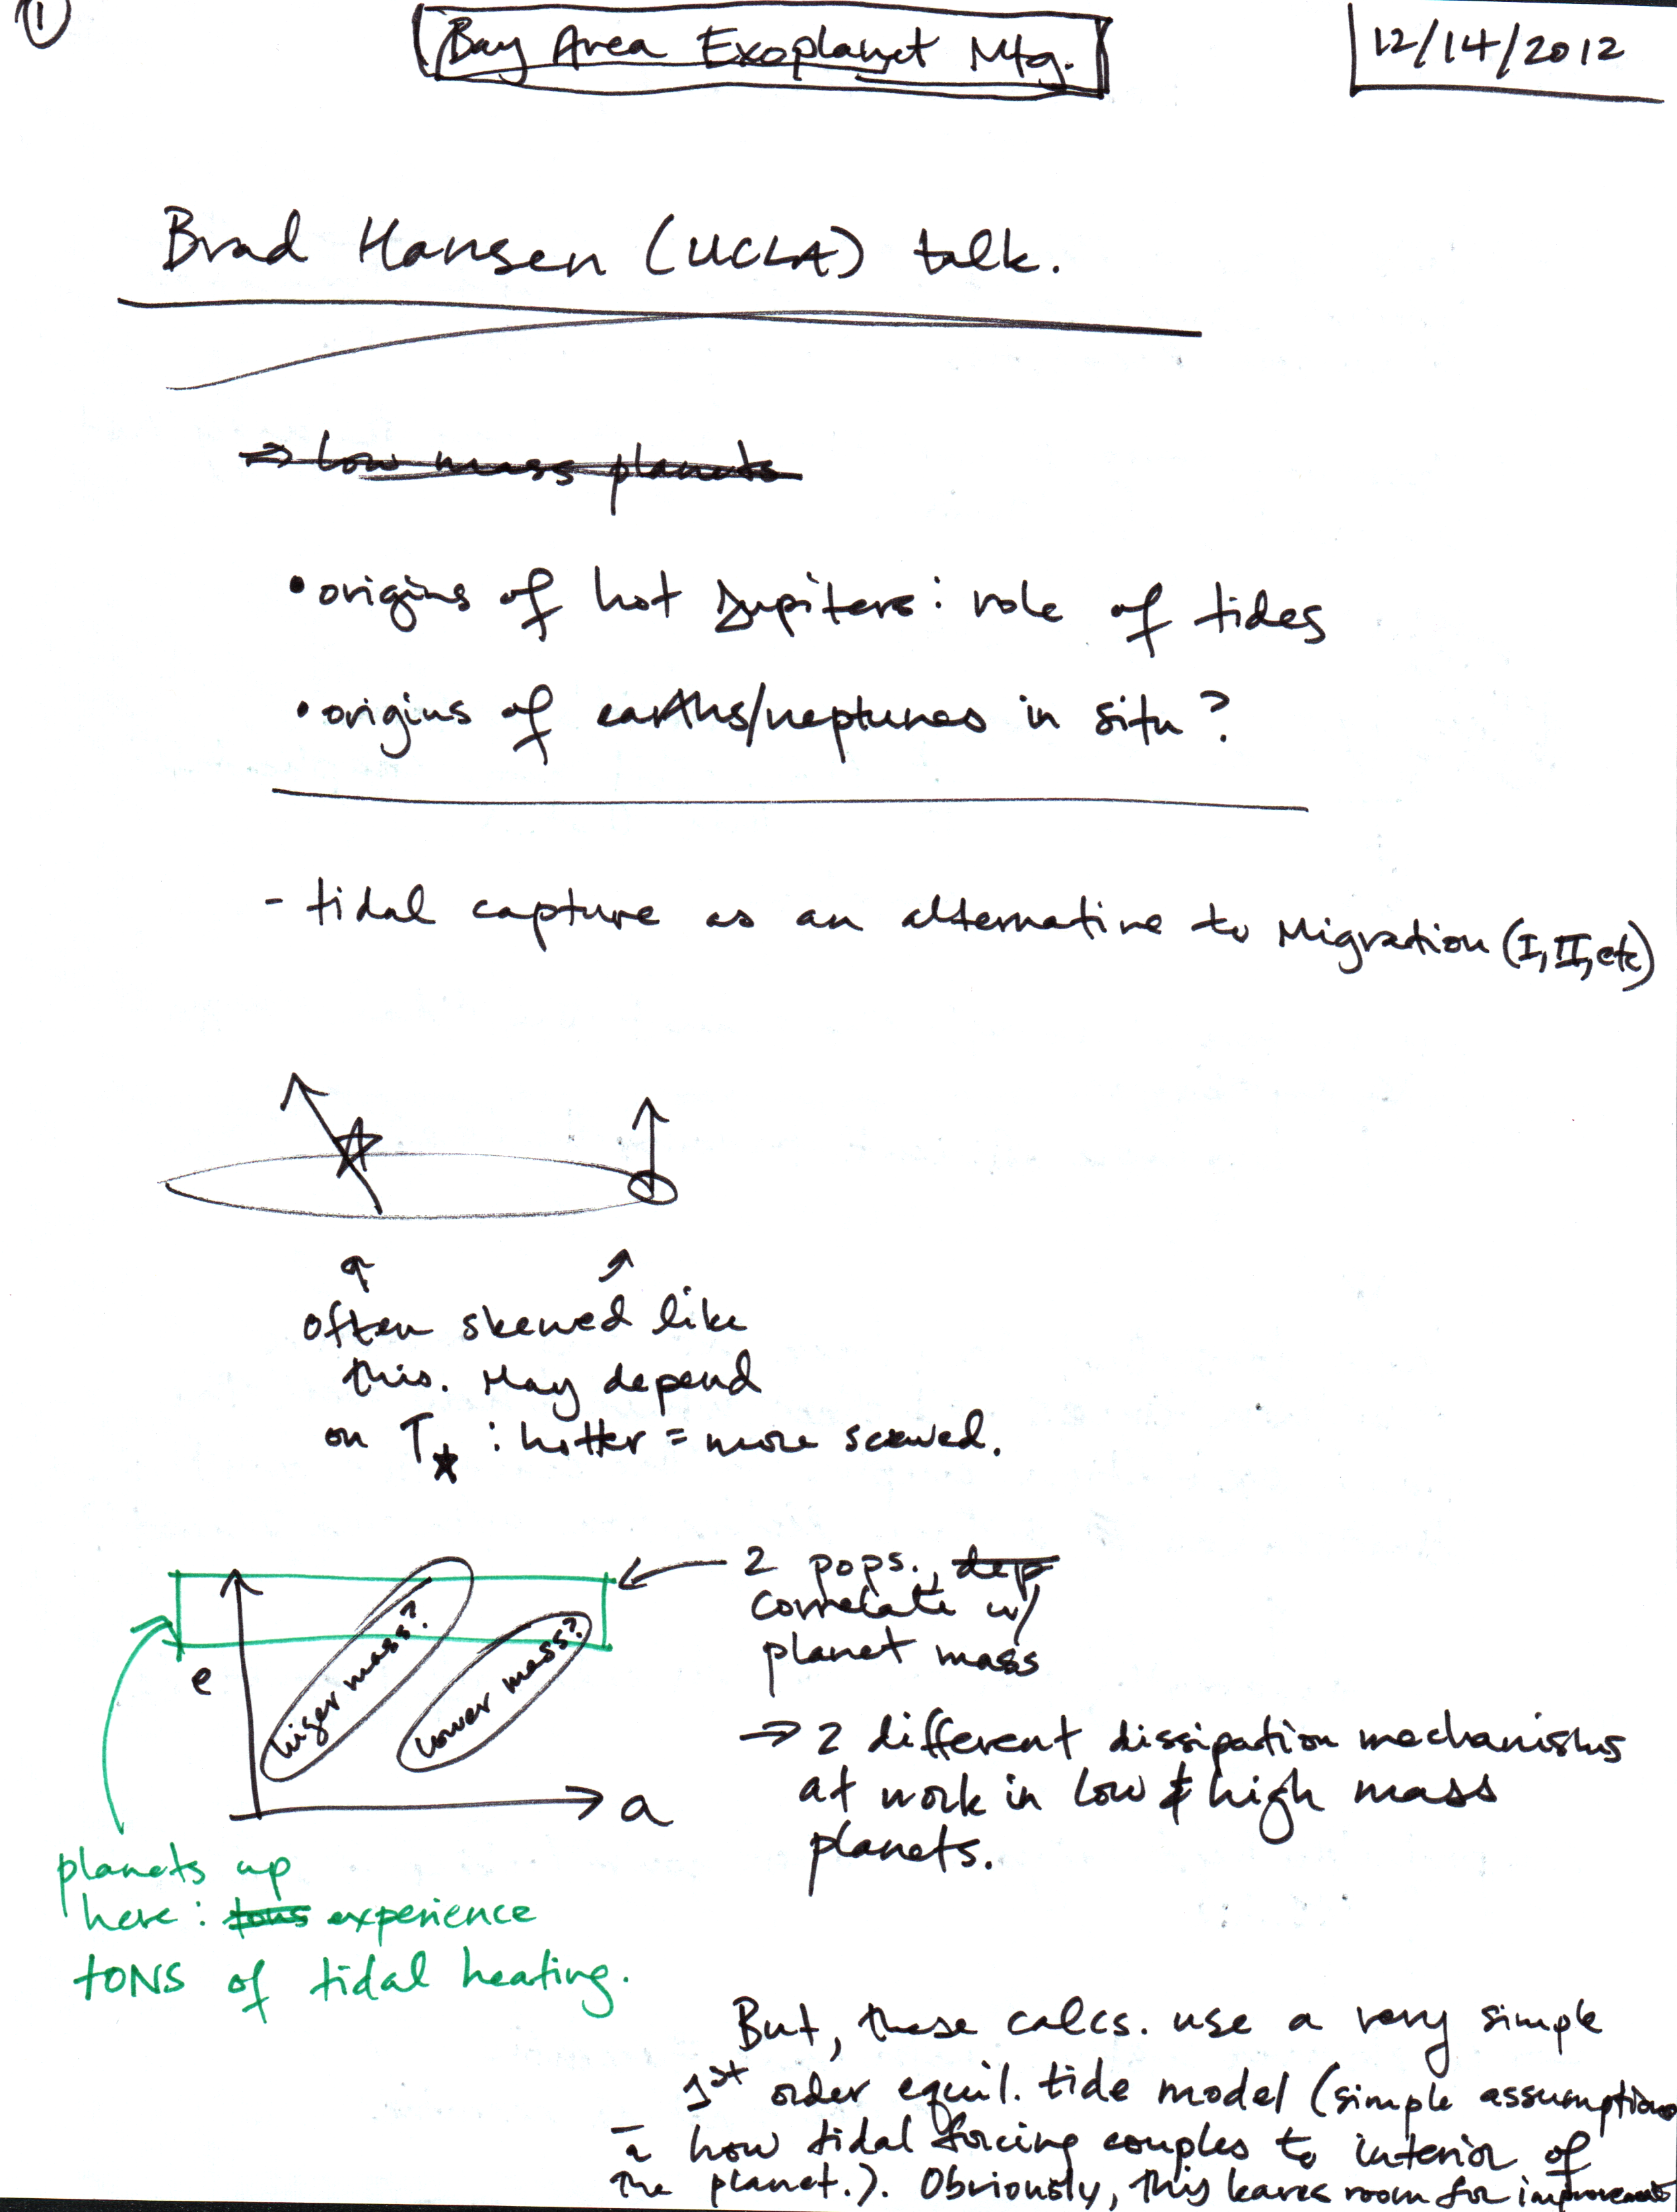 1
Bay Area Exoplanet Mtg.
12/14/2012
Brad Hansen (UCLA) talk.
⇒ low mass planets
• origins of hot Jupiters: role of tides
• origins of earths/neptunes in situ?
- tidal capture as an alternative to Migration (I, II, etc)
often skewed like
this. May depend
on T★ : hotter = more scewed.
e
higer mass?
lower mass?
a
2 pops., dep
correlate w/
planet mass
→ 2 different dissipation mechanisms
at work in low & high mass
planets.
planets up
here: tons experience
tONS of tidal heating.
But, these calcs. use a very simple
1st order equil. tide model (simple assumptions
how tidal forcing couples to interior of
the planet.). Obviously, this leaves room for improvement